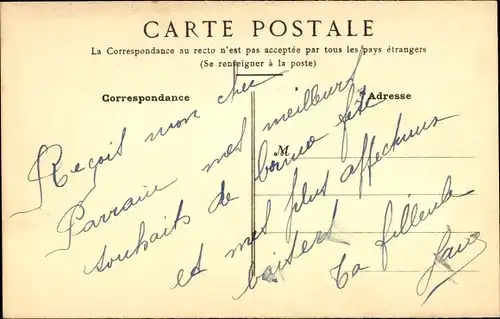 CARTE POSTALE
La Correspondance au recto n'est pas acceptée par tous les pays étrangers
(Se renseigner à la poste)
Correspondance
Adresse
M
Reçois mon cher
Parrain mes meilleurs
souhaits de bonne fête
et mes plus affectueux
baisers
Ta filleule